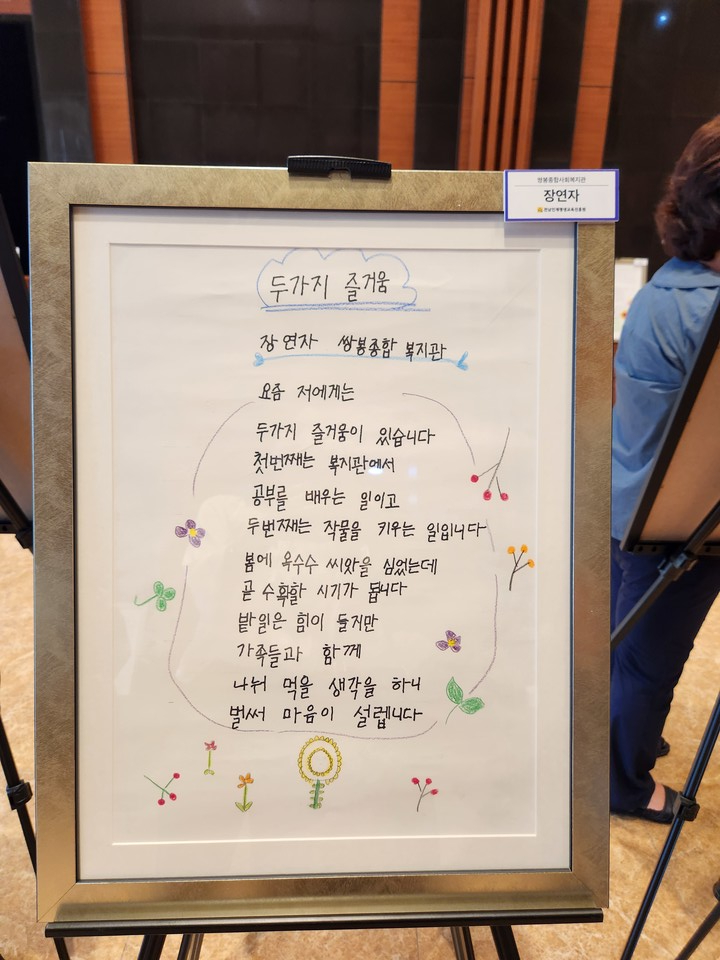 쌍봉종합사회복지관
장연자
전남인재평생교육진흥원
두가지 즐거움
장연자 쌍봉종합 복지관
요즘 저에게는
두가지 즐거움이 있습니다
첫번째는 복지관에서
공부를 배우는 일이고
두번째는 작물을 키우는 일입니다
봄에 옥수수 씨앗을 심었는데
곧 수확할 시기가 됩니다
밭일은 힘이 들지만
가족들과 함께
나눠 먹을 생각을 하니
벌써 마음이 설렙니다